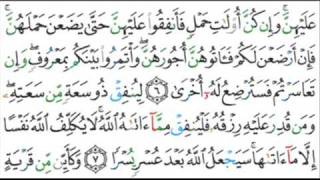 عَلَيْهِنَّ ۚ وَإِن كُنَّ أُو۟لَـٰتِ حَمْلٍ فَأَنفِقُوا۟ عَلَيْهِنَّ حَتَّىٰ يَضَعْنَ حَمْلَهُنَّ ۚ
فَإِنْ أَرْضَعْنَ لَكُمْ فَـَٔاتُوهُنَّ أُجُورَهُنَّ ۖ وَأْتَمِرُوا۟ بَيْنَكُم بِمَعْرُوفٍ ۖ وَإِن
تَعَاسَرْتُمْ فَسَتُرْضِعُ لَهُۥٓ أُخْرَىٰ ٦ لِيُنفِقْ ذُو سَعَةٍ مِّن سَعَتِهِۦ ۖ
وَمَن قُدِرَ عَلَيْهِ رِزْقُهُۥ فَلْيُنفِقْ مِمَّآ ءَاتَىٰهُ ٱللَّهُ ۚ لَا يُكَلِّفُ ٱللَّهُ نَفْسًا
إِلَّا مَآ ءَاتَىٰهَا ۚ سَيَجْعَلُ ٱللَّهُ بَعْدَ عُسْرٍ يُسْرًا ٧ وَكَأَيِّن مِّن قَرْيَةٍ